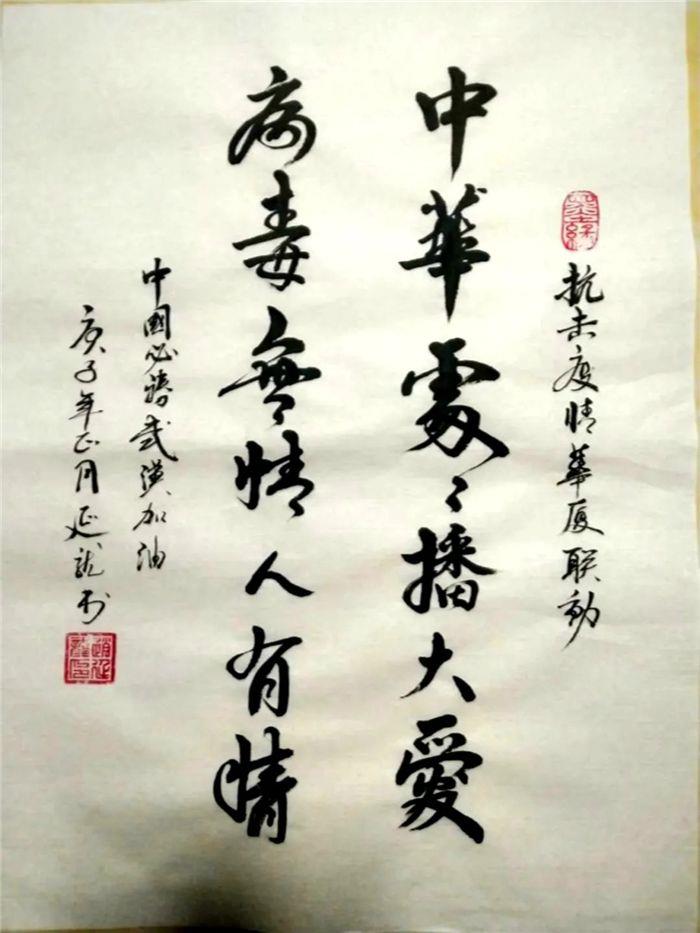 抗击疫情華厦联动
中華處〻播大愛
病毒無情人有情
中國必勝武漢加油
庚子年正月延龍书